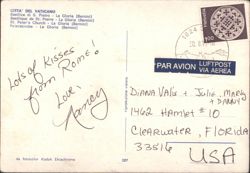 CITTA' DEL VATICANO
Basilica di S. Pietro - La Gloria (Bernini)
Basilique de St. Pierre - La Gloire (Bernini)
St. Peter's Church - La Gloria (Bernini)
Peterskirche - La Gloria (Bernini)
Lots of Kisses
from Rome!
Love,
Nancy
PAR AVION
LUFTPOST
VIA AEREA
Diana Vale + Julie, Mary
+ Danny
1462 Hamlet #10
Clearwater, Florida
33516
USA
Kodak Ektachrome